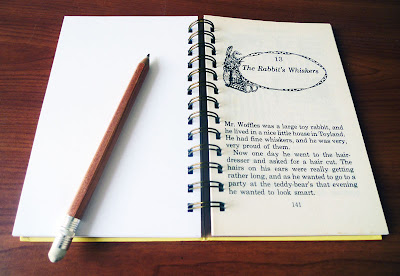 13
The Rabbit's Whiskers
Mr. Woffles was a large toy rabbit, and
he lived in a nice little house in Toyland.
He had fine whiskers, and he was very,
very proud of them.
Now one day he went to the hair-
dresser and asked for a hair cut. The
hairs on his ears were really getting
rather long, and as he wanted to go to a
party at the teddy-bear's that evening
he wanted to look smart.
141